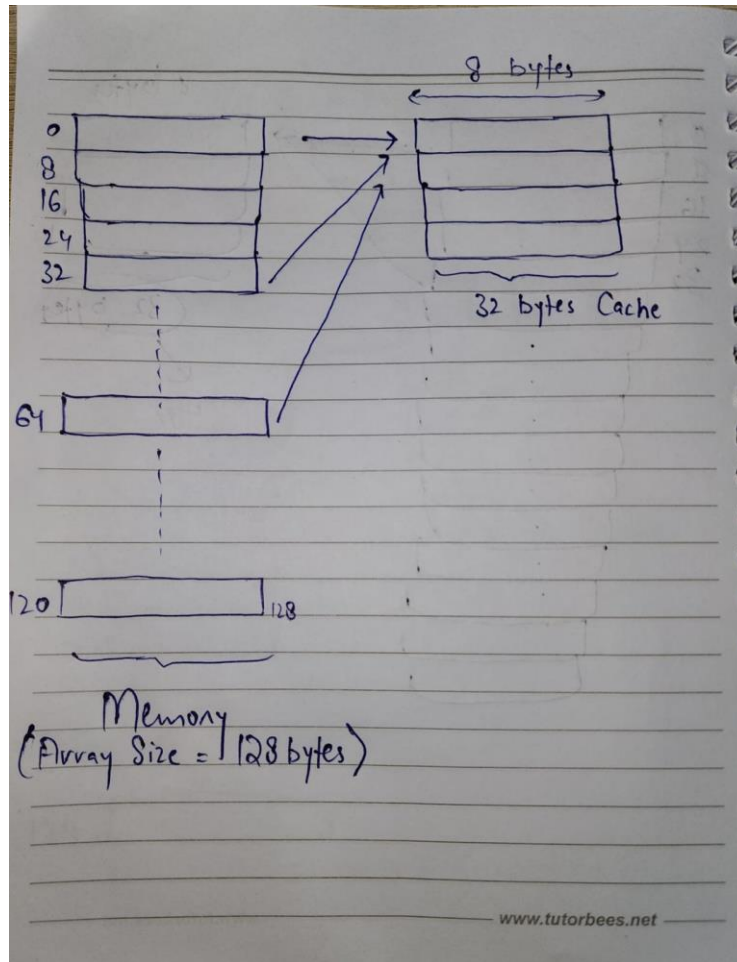 8 bytes
0
8
16
24
32
32 bytes Cache
64
120
128
Memory
(Array Size = 128 bytes)
www.tutorbees.net